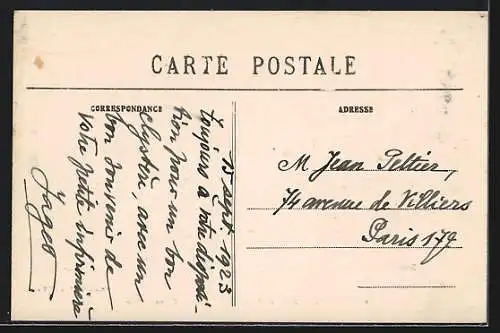 CARTE POSTALE
CORRESPONDANCE
15 Sept. 1923
toujours à votre disposi-
tion pour un bon
clystère, avec un
bon souvenir de
votre petite infirmière
ADRESSE
M Jean Peltier,
74 avenue de Villiers
Paris 17e